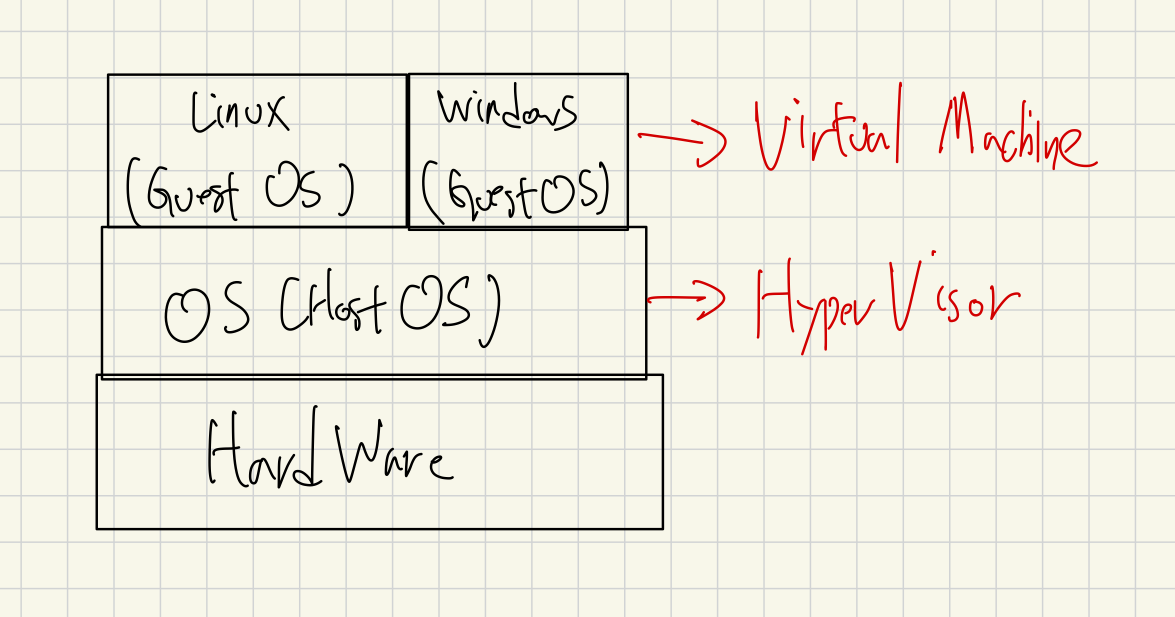 Linux
(Guest OS)
Windows
(Guest OS)
Virtual Machine
OS (Host OS)
HyperVisor
HardWare